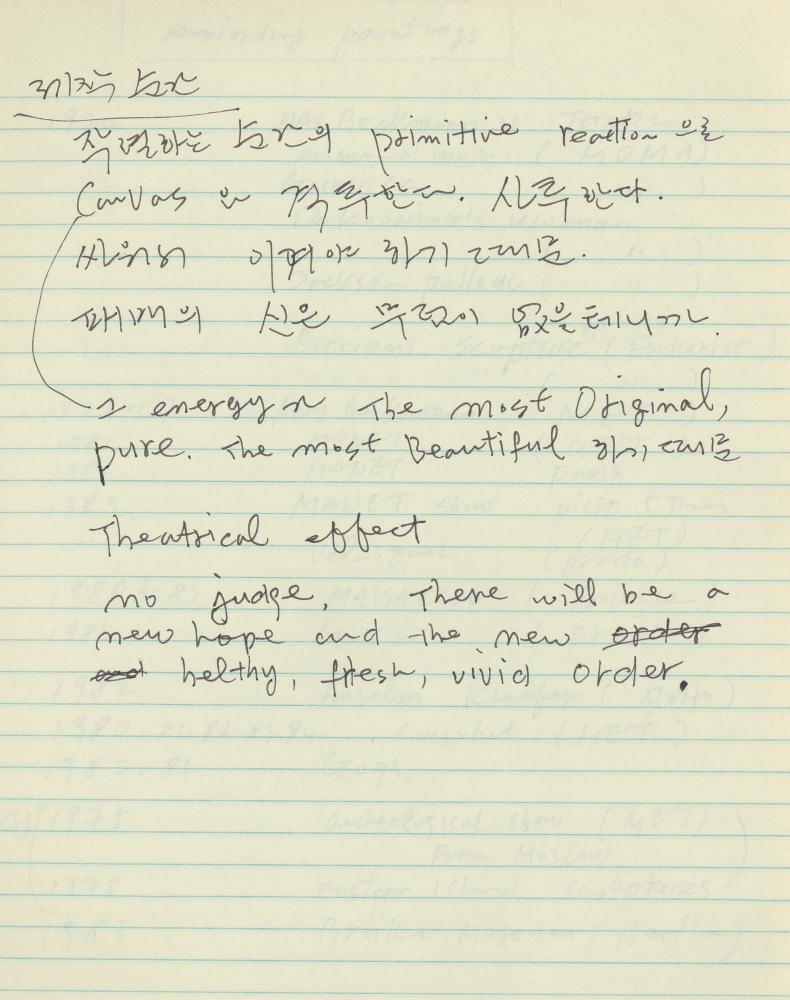 제작 순간
작렬하는 순간의 primitive reaction 으로
Canvas 와 격투한다. 사투한다.
싸워서 이겨야 하기 때문.
패배의 신은 무덤이 없을테니까.
그 energy가 the most Original,
pure. the most Beautiful 하기 때문
Theatrical effect
no judge, There will be a
new hope and the new order
and helthy, fresh, vivid order.